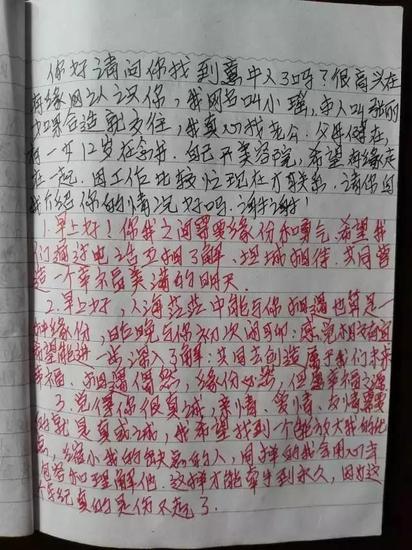 你好请问你找到意中人了吗？很高兴在
再缘网认识你，我网名叫小瑶，本人叫张
造就女住，我真心找老公．父母健在，
一个12岁在念书．自己开美容院，希望有缘走
在一起．因工作比较忙现在才联系．请你自
我介绍你的情况好吗．谢谢！
1.早上好！你我之间需要缘份和勇气．希望我
们通过电话互相了解．坦城相待．共同营
造一个幸福美满的明天．
2.早上好，人海茫茫中能与你相遇也算是一
种缘份，昨晚与你初次的聊．感觉
希望能进一步深入了解．共同去创造属于我们未来
幸福．相遇偶然，缘份必然，但幸福
3.觉得你很真诚，亲情、爱情、友情需要
的就是真或诚，我希望找到一个能放大我的优
点，缩小我的缺点的人，同样的我会用心去
包容和理解他．这样才能牵手到永久，因为这
个年纪真的是伤不起了．